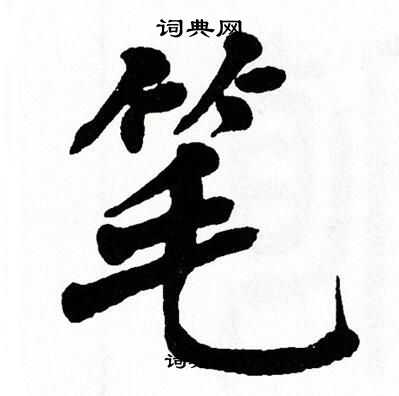 词典网
笔
词